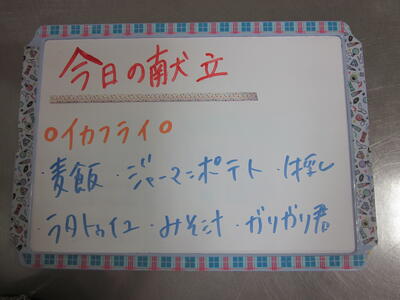 今日の献立
○イカフライ○
・麦飯・ジャーマンポテト・冷乳し
・ラタトゥイユ・みそ汁・ガリガリ君